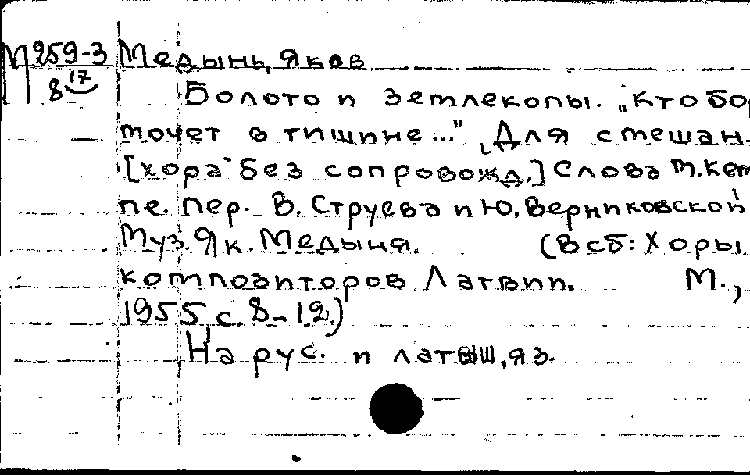 М 259-3 Медынь, Яков
8 17
Болото и землекопы. "Кто бор
мочет в тишине..." Для смешан.
[хора без сопровожд.] Слова М. Кем
пе. Пер. В. Струева и Ю. Верниковской
Муз. Як. Медыня. (В сб: Хоры
композиторов Латвии. М.,
1955, с. 8-12.)
На рус. и латыш, яз.